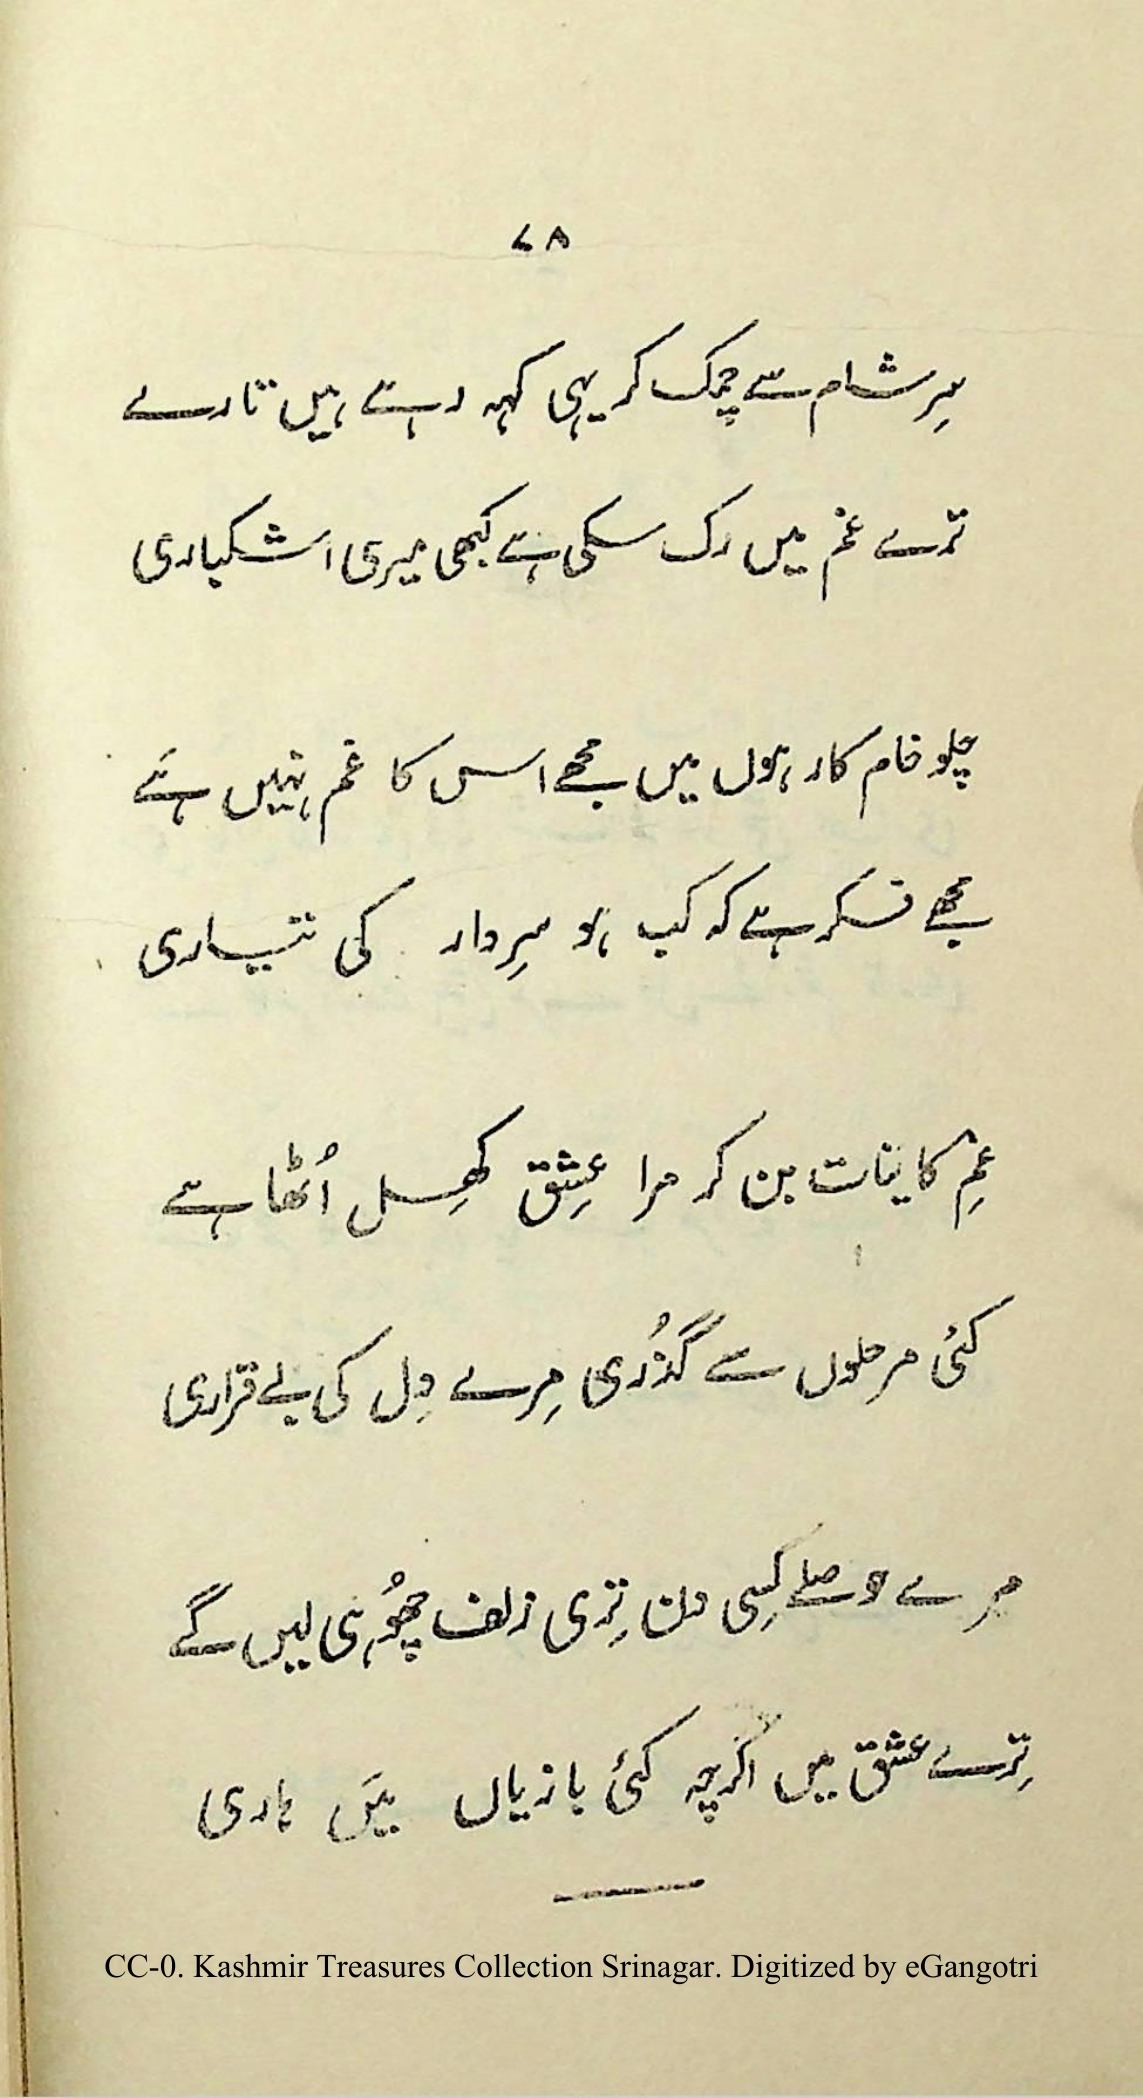 ۷۸
سرِ شام سے چمک کر یہی کہہ رہے ہیں تارے
ترے غم میں رک سکی ہے کبھی میری اشکباری
چلو خام کار ہوں میں مجھے اس کا غم نہیں ہے
مجھے فکر ہے کہ کب ہو سرِ دار کی تیاری
غمِ کاینات بن کر مرا عِشق کھِل اُٹھا ہے
کئی مرحلوں سے گذُری مِرے دِل کی بے قراری
مرے حوصلے کِسی دن تِری زلف چھُو ہی لیں گے
تِرے عشق میں اگرچہ کئی بازیاں ہیں ہاری
CC-0. Kashmir Treasures Collection Srinagar. Digitized by eGangotri